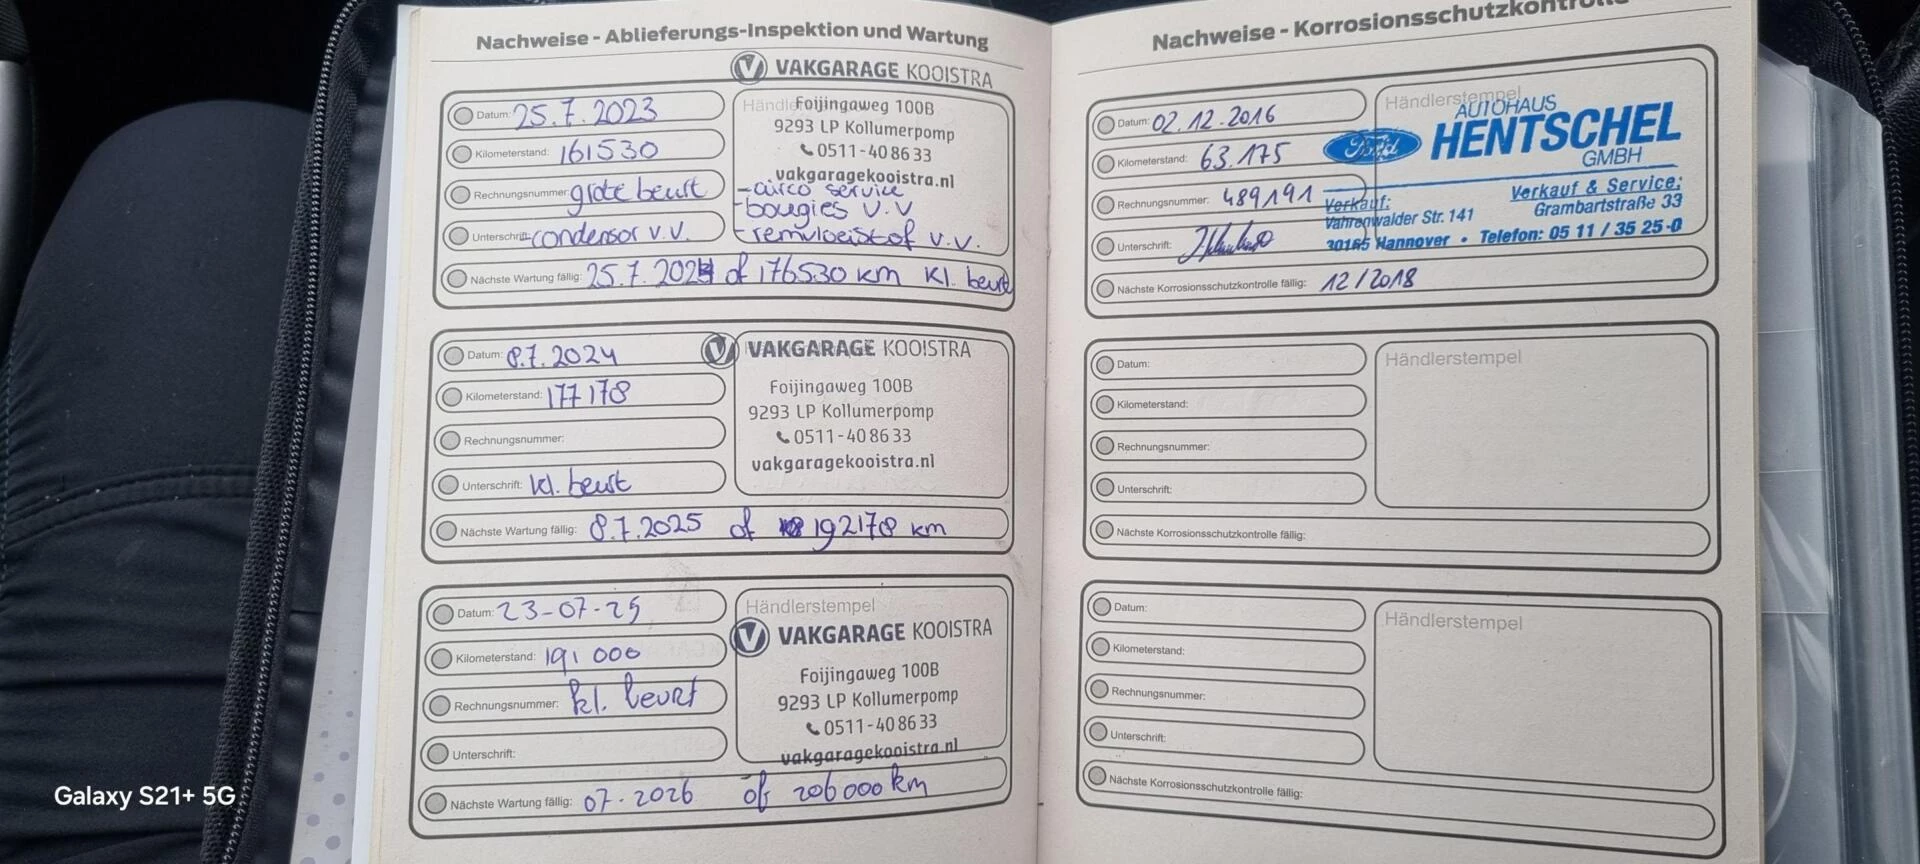 Nachweise - Ablieferungs-Inspektion und Wartung
VAKGARAGE KOOISTRA
Datum: 25.7.2023
Kilometerstand: 161530
Rechnungsnummer: grote beurt
Unterschrift: condensor v.v.
Händle
Foijingaweg 100B
9293 LP Kollumerpomp
0511-408633
vakgaragekooistra.nl
- airco service
- bougies v.v
- remvloeistof v.v.
Nächste Wartung fällig: 25.7.2024 of 176530 km kl. beurt
Datum: 8.7.2024
Kilometerstand: 177178
Rechnungsnummer:
Unterschrift: kl. beurt
VAKGARAGE KOOISTRA
Foijingaweg 100B
9293 LP Kollumerpomp
0511-408633
vakgaragekooistra.nl
Nächste Wartung fällig: 8.7.2025 of 192178 km
Datum: 23-07-25
Kilometerstand: 191 000
Rechnungsnummer: kl. beurt
Unterschrift:
Händlerstempel
VAKGARAGE KOOISTRA
Foijingaweg 100B
9293 LP Kollumerpomp
0511-408633
vakgaragekooistra.nl
Nächste Wartung fällig: 07-2026 of 206000 km
Nachweise - Korrosionsschutzkontrolle
Datum: 02.12.2016
Kilometerstand: 63.175
Rechnungsnummer: 489191
Unterschrift:
Händlerstempel
AUTOHAUS
Ford HENTSCHEL
GMBH
Verkauf:
Vahrenwalder Str. 141
Verkauf & Service:
Grambartstraße 33
30165 Hannover • Telefon: 05 11 / 35 25-0
Nächste Korrosionsschutzkontrolle fällig: 12/2018
Datum:
Kilometerstand:
Rechnungsnummer:
Unterschrift:
Händlerstempel
Nächste Korrosionsschutzkontrolle fällig:
Datum:
Kilometerstand:
Rechnungsnummer:
Unterschrift:
Händlerstempel
Nächste Korrosionsschutzkontrolle fällig:
Galaxy S21+ 5G